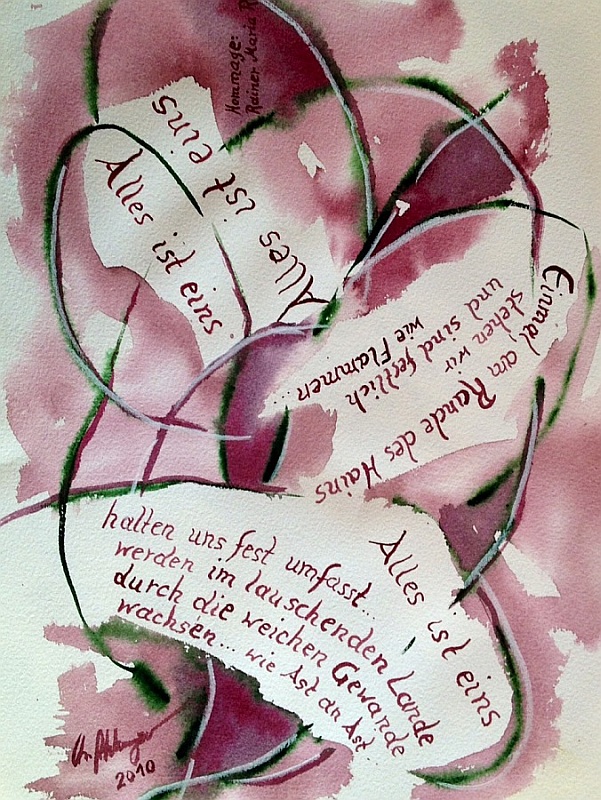 Hommage:
Rainer Maria R
Alles ist eins
Alles ist eins
Einmal, am Rande des Hains
stehen wir
und sind festlich
wie Flammen...
Alles ist eins
halten uns fest umfasst...
werden im lauschenden Lande
durch die weichen Gewande
wachsen... wie Ast an Ast...
2010